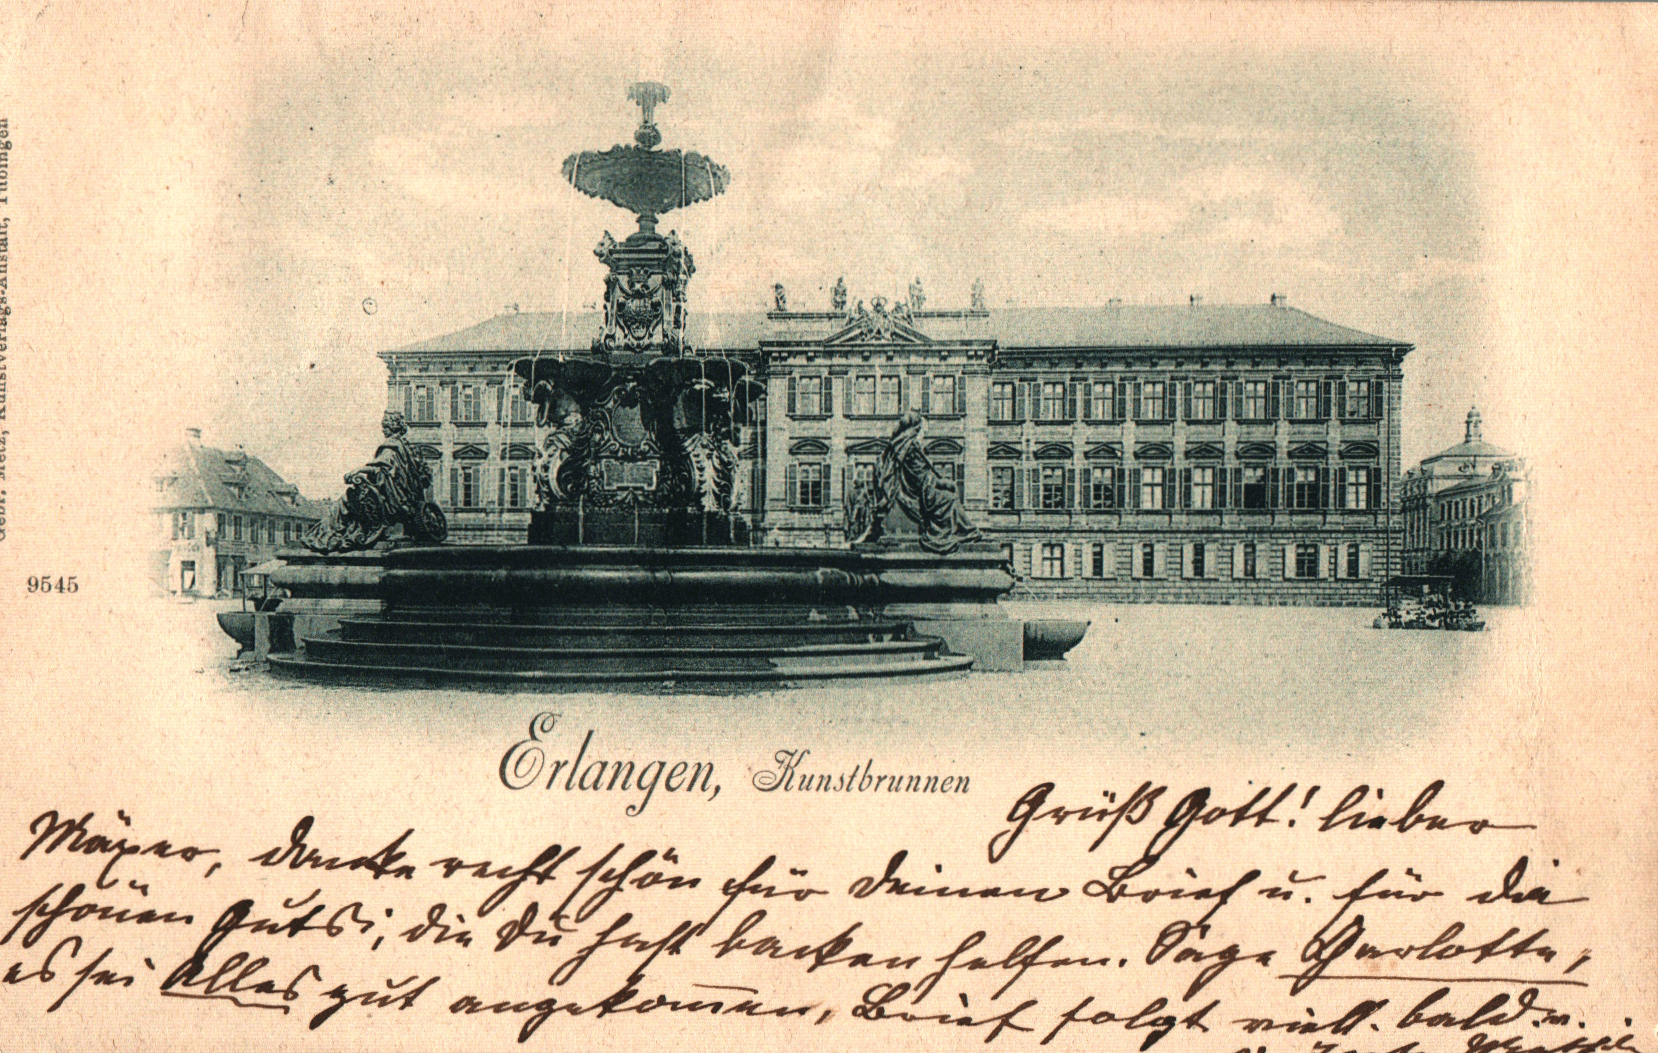 Gebr. Metz, Kunstverlags-Anstalt, Tübingen
9545
Erlangen, Kunstbrunnen
Grüß Gott! lieber
Mäxer, danke recht schön für Deinen Brief u. für die
schönen Gutsi, die Du hast backen helfen. Sage Charlotte,
es sei Alles gut angekommen, Brief folgt viell. bald.